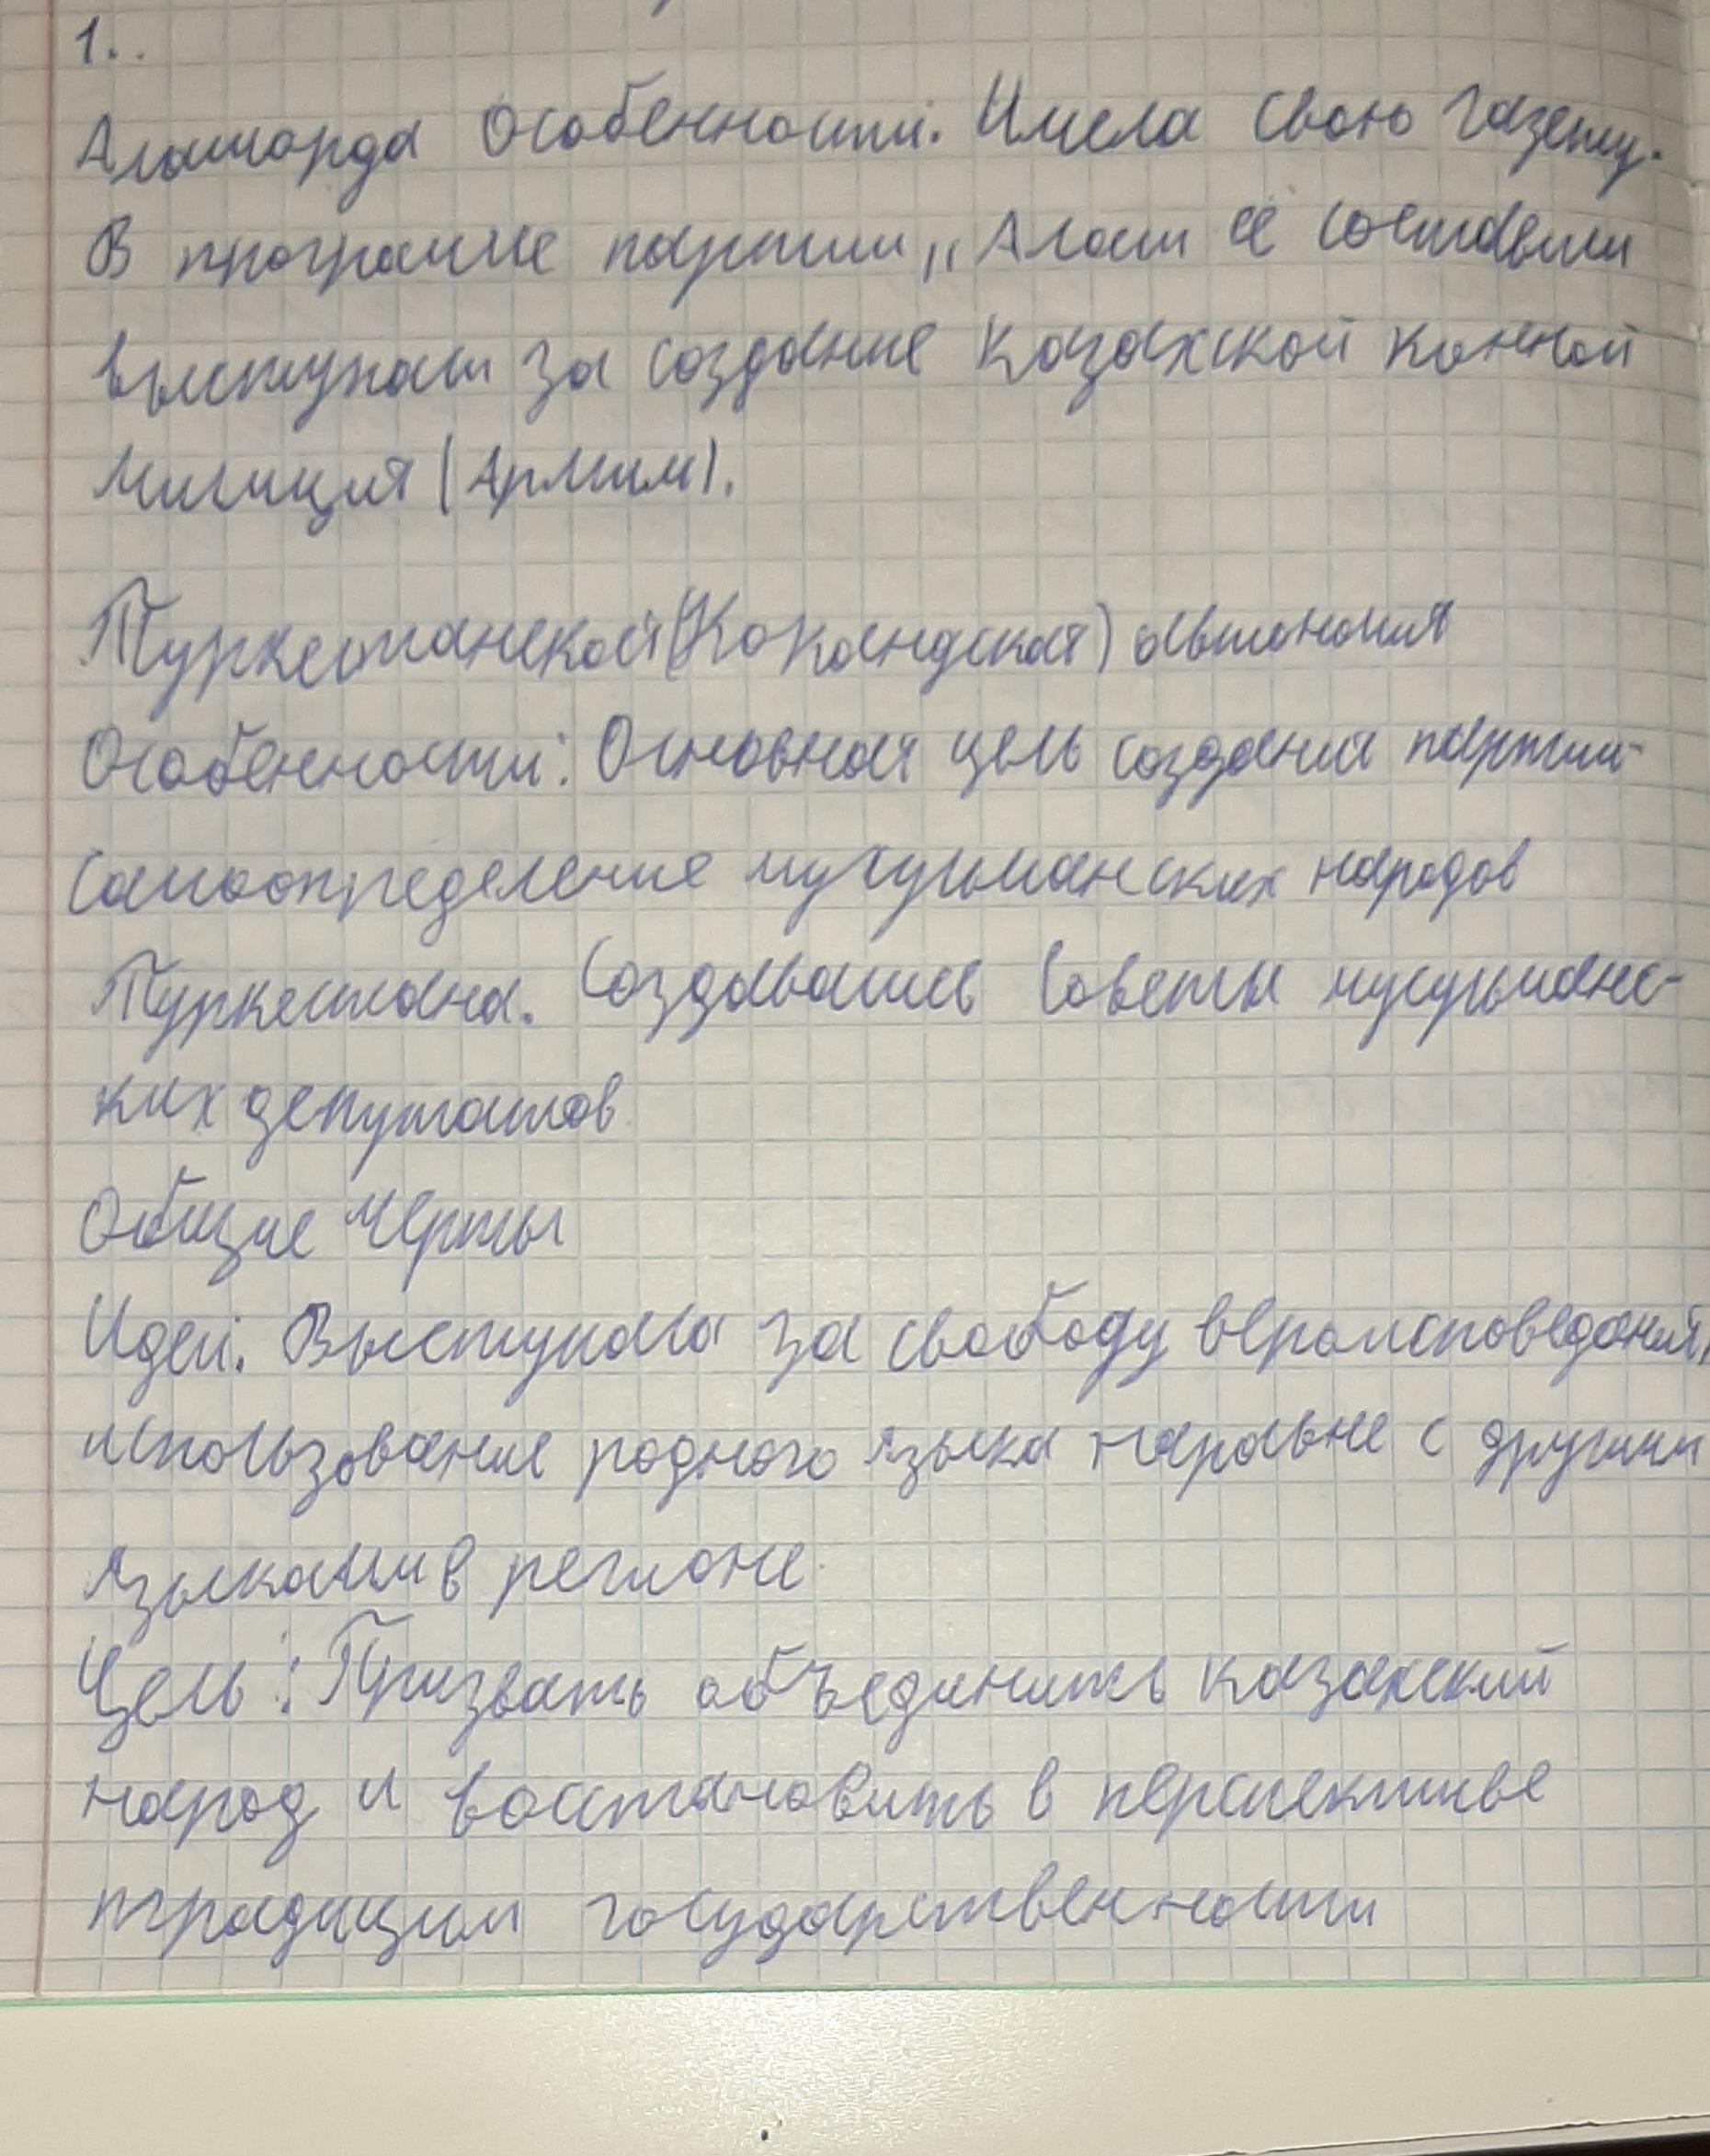 1..
Алашорда Особенности. Имела свою газету.
В программе партии „Алаш её составили
выступали за создание Казахской конной
милиция (Армии).
Туркестанская (Кокандская) автономия
Особенности: Основная цель создания партии-
самоопределение мусульманских народов
Туркестана. Создавались Советы мусульманс-
ких депутатов
Общие черты
Идеи. Выступала за свободу вероисповедания,
использование родного языка наравне с другими
языками в регионе.
Цель: Призвать объединить казахский
народ и восстановить в перспективе
традиции государственности